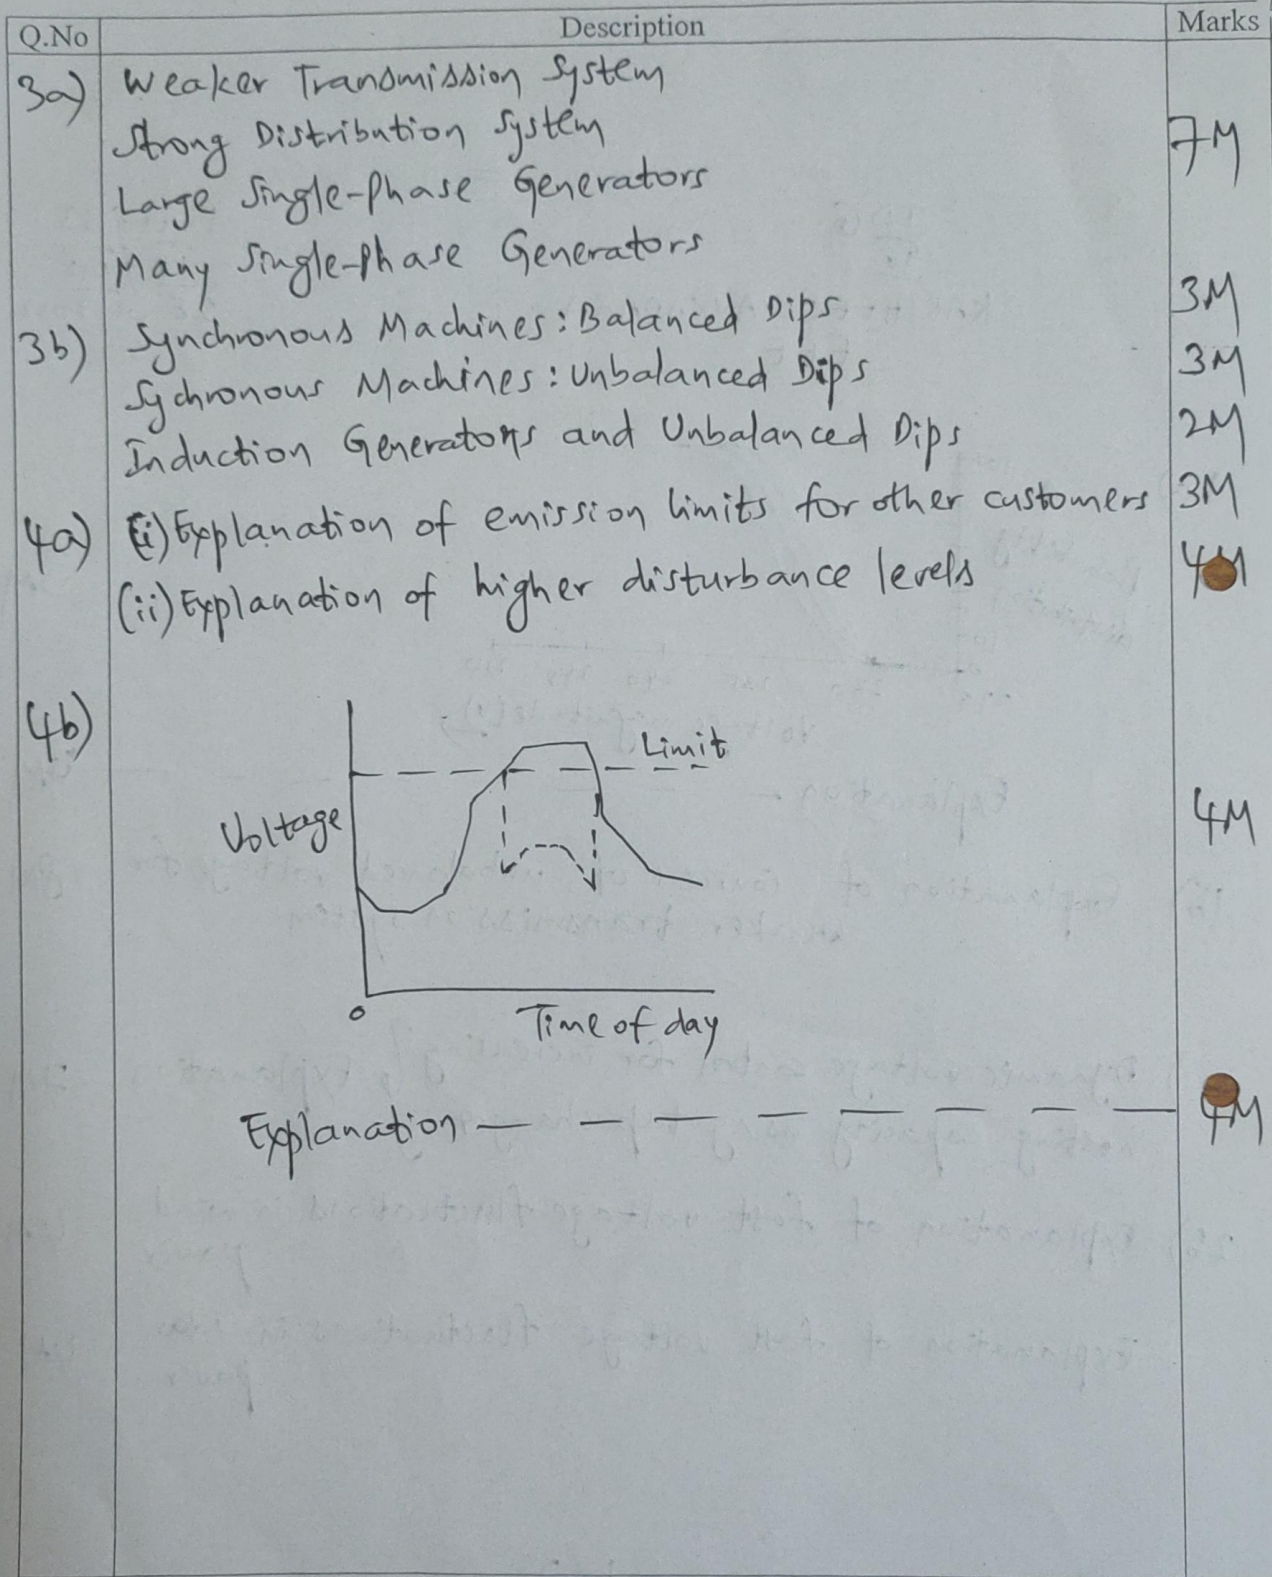 Q.No Description Marks
3a) Weaker Transmission System
Strong Distribution System 7M
Large Single-Phase Generators
Many Single-Phase Generators
3b) Synchronous Machines: Balanced Dips 3M
Sychronous Machines: Unbalanced Dips 3M
Induction Generators and Unbalanced Dips 2M
4a) (i) Explanation of emission limits for other customers 3M
(ii) Explanation of higher disturbance levels
4b)
Limit
Voltage 4M
0
Time of day
Explanation — — — — — — — — 4M